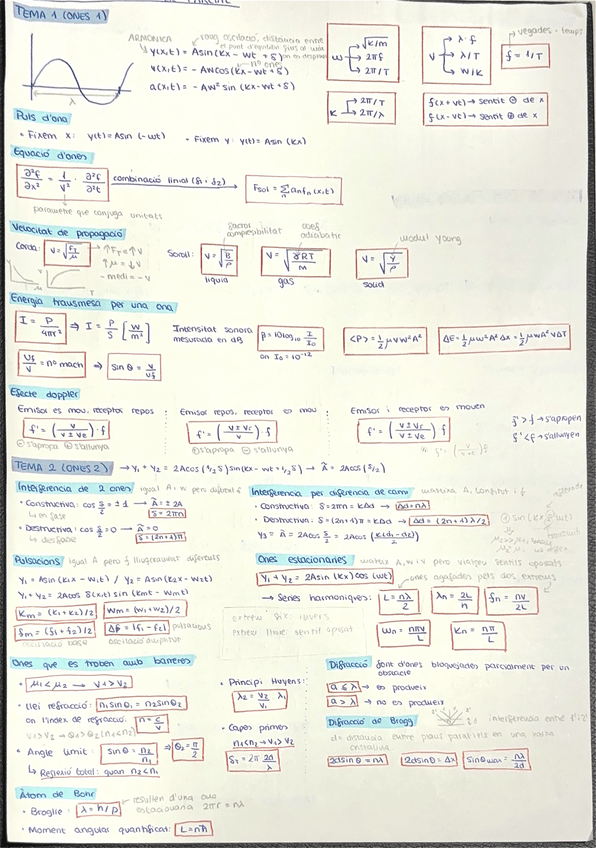 TEMA 1 (ONES 1)
ARMÒNICA
y(x,t) = Asin(kx - wt + δ)
v(x,t) = -Awcos(kx - wt + δ)
a(x,t) = -Aw² sin(kx - wt + δ)
nº ones
λ
w → √k/m
→ 2πf
→ 2π/T
K → 2π/T
→ 2π/λ
V → λ·f
→ λ/T
→ w/k
f = 1/T
vegades · temps
f(x+vt) → sentit ⊖ de x
f(x-vt) → sentit ⊕ de x
Puls d'ona
• Fixem x: y(t) = Asin(-wt) • Fixem y: y(t) = Asin(kx)
Equació d'ones
∂²f/∂x² = 1/v² · ∂²f/∂²t
combinació linial (f₁ · f₂) → Fsol = Σₙ aₙfₙ(x,t)
paràmetre que conjuga unitats
Velocitat de propagació
Corda: V = √F_T/μ → ↑F_T = ↑V
→ ↑μ = ↓V
- medi = - v
Soroll: V = √B/ρ líquid
factor compresibilitat
V = √γRT/m gas
coef adiabàtic
V = √Y/ρ sòlid
mòdul young
Energia transmesa per una ona
I = P/4πr² ⇒ I = P/S [W/m²]
Intensitat sonora mesurada en dB
β = 10log₁₀ I/I₀
on I₀ = 10⁻¹²
<P> = ½μvw²A²
ΔE = ½μw²A²Δx = ½μwA²vΔT
Vf/V = nº mach ⇒ sinθ = V/Vf
Efecte doppler
Emisor es mou, receptor repòs
f' = (V/V±Ve)·f
⊖ s'apropa ⊕ s'allunya
Emisor repòs, receptor es mou
f' = (V±Vr/V)·f
⊕ s'apropa ⊖ s'allunya
Emisor i receptor es mouen
f' = (V±Vr/V±Ve)·f
f' > f → s'apropen
f' < f → s'allunyen
TEMA 2 (ONES 2) → Y₁ + Y₂ = 2Acos(½δ)sin(kx - wt + ½δ) → Ã = 2Acos(δ/2)
Interferència de 2 ones igual A i w però diferent δ
• Constructiva: cos δ/2 = ±1 → Ã = ±2A
↳ en fase δ = 2πn
• Destructiva: cos δ/2 = 0 → Ã = 0
↳ desfase δ = (2n+1)π
Interferència per diferencia de camí
• Constructiva: δ = 2πn = kΔd → Δd = nλ
• Destructiva: δ = (2n+1)π = kΔd → Δd = (2n+1)λ/2
Y₃ = Ã = 2Acos δ/2 = 2Acos(k(d₁-d₂)/2)
Pulsacions igual A però f lleugerament diferents
Y₁ = Asin(k₁x - w₁t) / Y₂ = Asin(k₂x - w₂t)
Y₁ + Y₂ = 2Acos δ(x,t) sin(kmt - wmt)
Km = (K₁+K₂)/2 Wm = (w₁+w₂)/2
fm = (f₁+f₂)/2 Δf = |f₁-f₂| pulsacions
oscilació base oscilació amplitud
Ones estacionàries mateix A, w i v però viatgen sentits oposats
Y₁ + Y₂ = 2Asin(kx)cos(wt)
ones agafades pels dos extrems
→ Sèries harmòniques: L = nλ/2 λn = 2L/n fn = nv/2L
Wn = nπv/L Kn = nπ/L
Ones que es troben amb barreres
• μ₁ < μ₂ → V₁ > V₂
• Llei refracció: n₁sinθ₁ = n₂sinθ₂
on l'índex de refracció: n = c/v
v₁ > v₂ → θ₁ > θ₂ (n₁ < n₂)
• Angle límit: sinθ = n₂/n₁ ⇒ θ₂ = π/2
↳ Reflexió total: quan n₂ < n₁
• Principi Huyens:
λ₂ = V₂/V₁ λ₁
• Capes primes
n₁ < n₂ → V₁ > V₂
Difracció font d'ones bloquejades parcialment per un obstacle
a ≤ λ → es produeix
a > λ → no es produeix
Difracció de Bragg
interferència entre 1' i 2'
d = distància entre plans paral·lels en una xarxa cristalina
2dsinθ = nλ 2dsinθ = Δx sinθmax = nλ/2d
Àtom de Bohr
• Broglie: λ = h/p
resulten d'una ona estacionària 2πr = nλ
• Moment angular quantificat: L = nħ